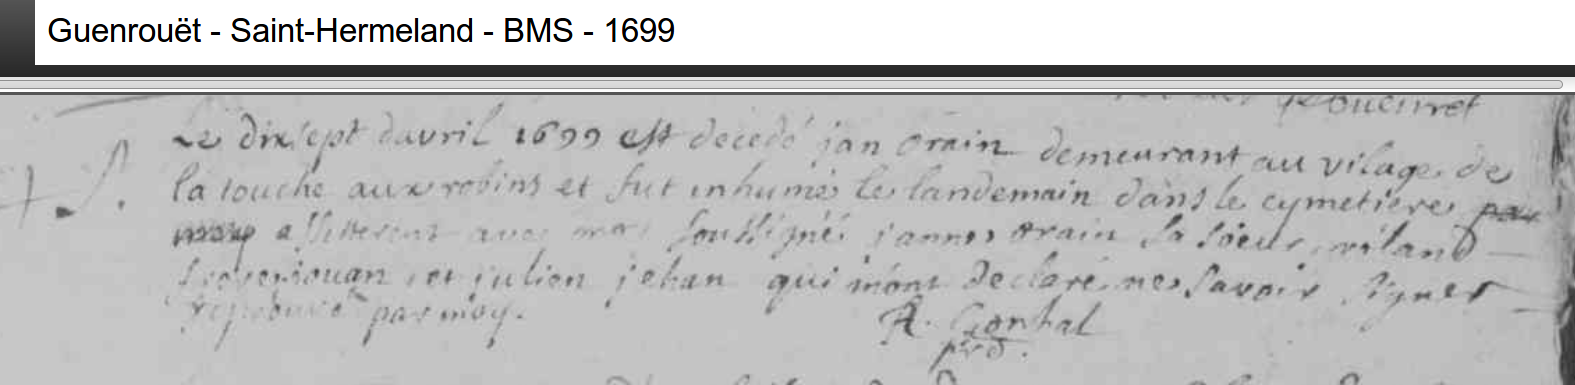 Guenrouët - Saint-Hermeland - BMS - 1699
Le dixsept davril 1699 est decedé jan orain demeurant au vilage de
la touche aux robins et fut inhumé le landemain dans le cymetiere par
moy assisterent avec moy soussigné janne orain sa soeur
et julien jehan qui mont declaré ne savoir signer
par moy.